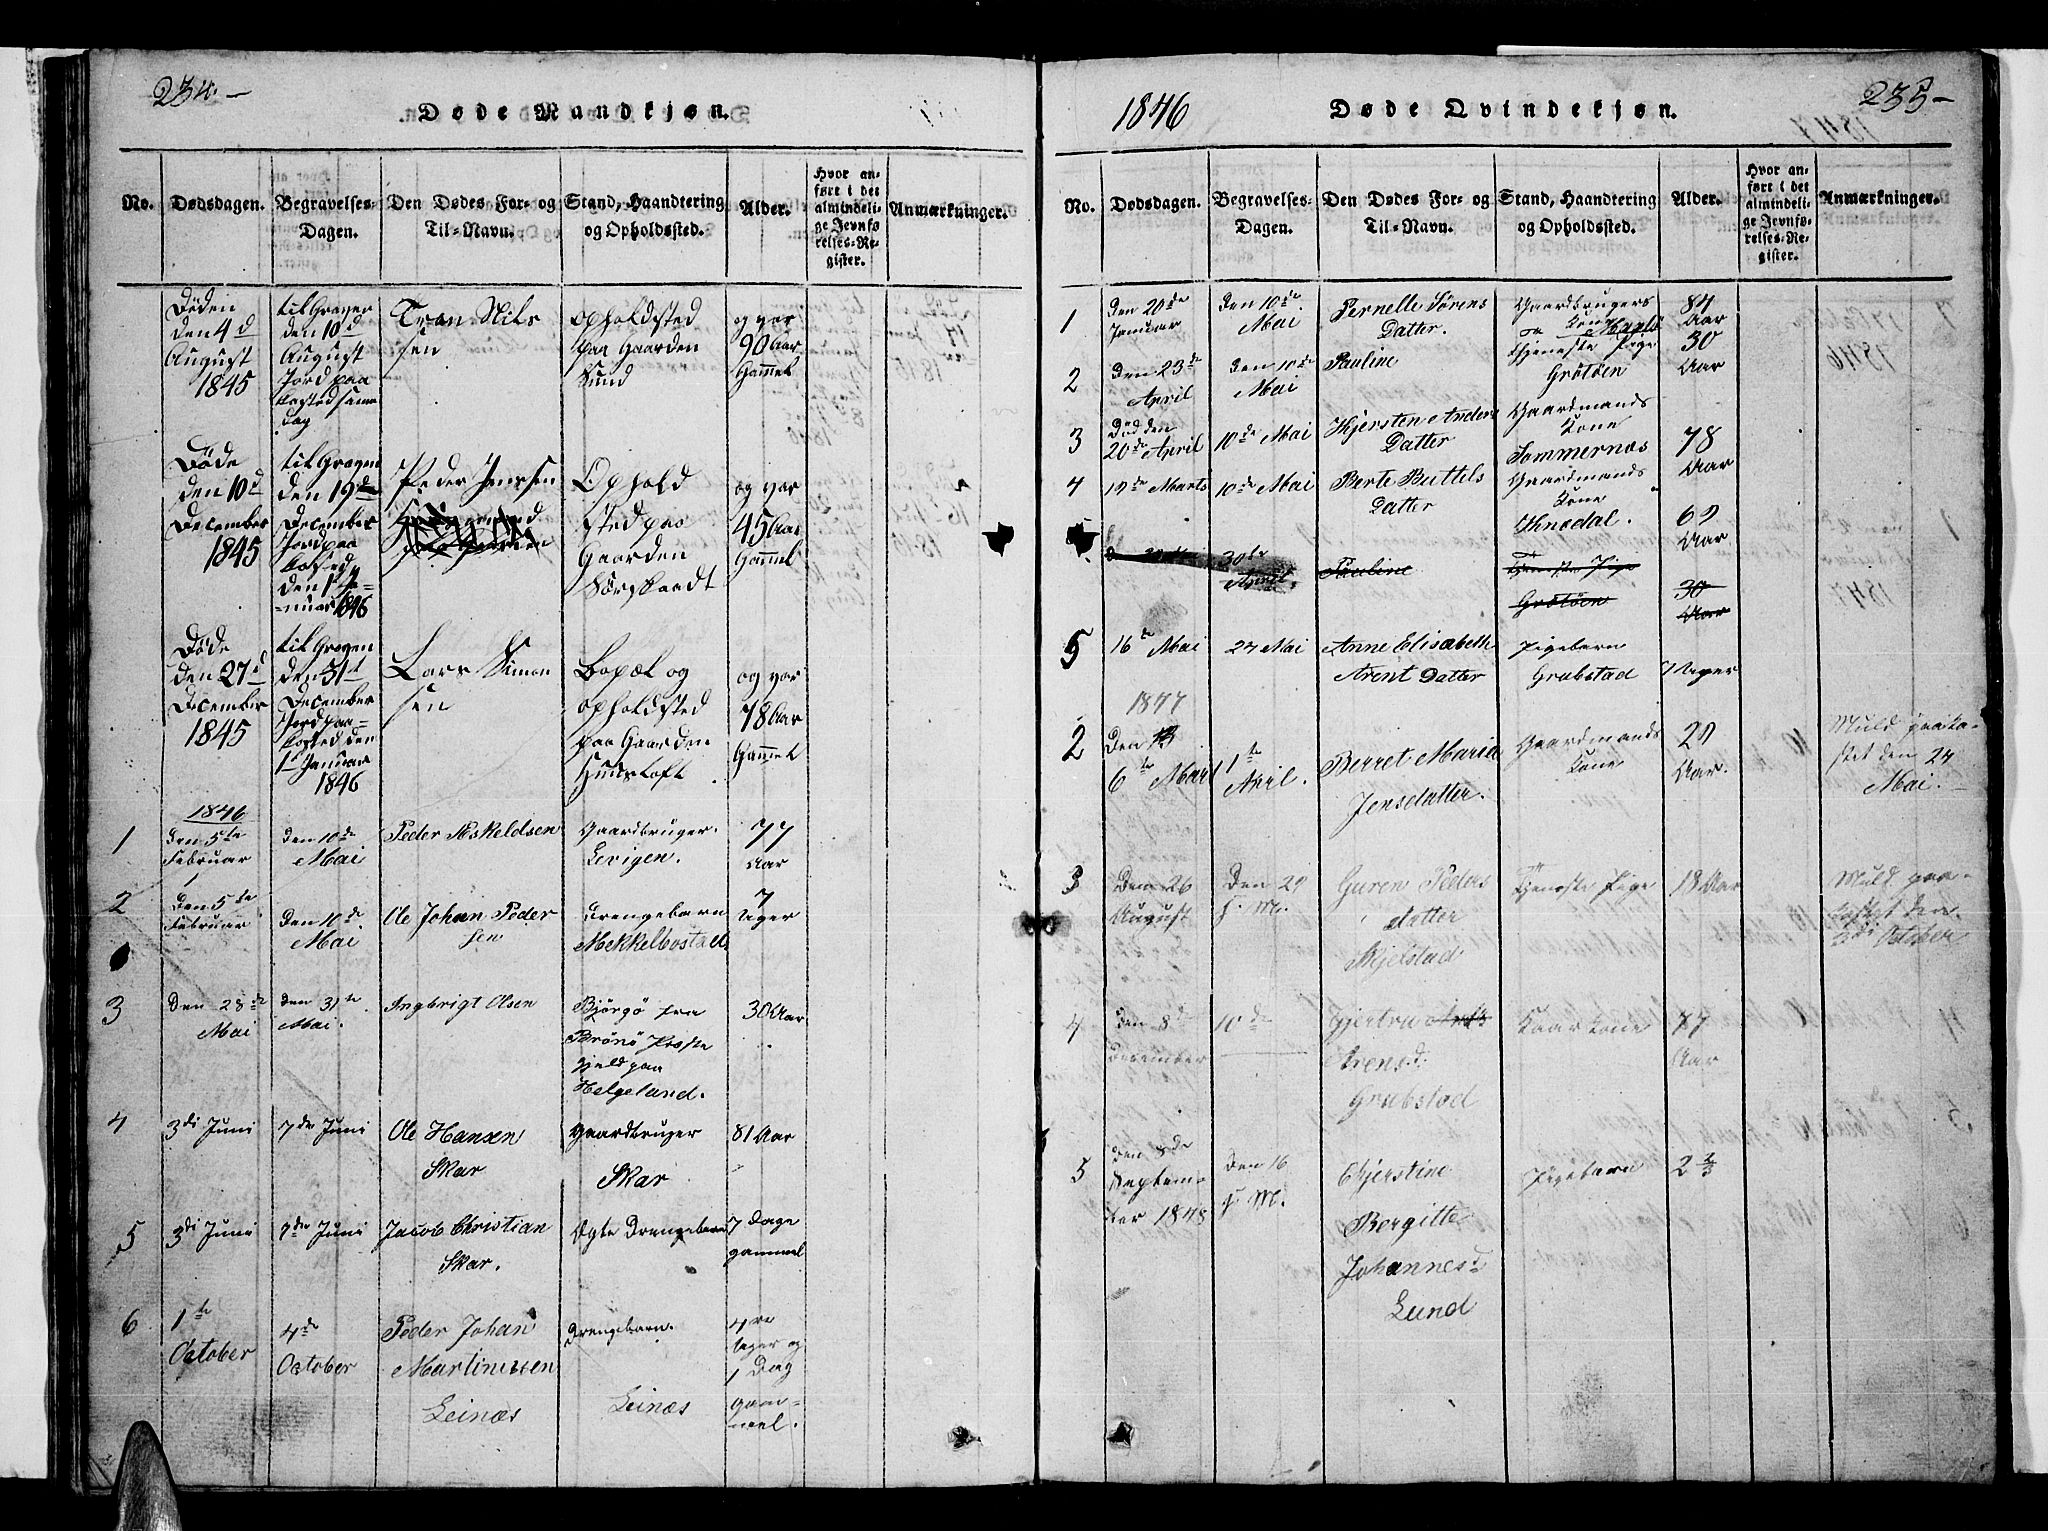 234.—
Døde Mandkjøn.
No.
Dødsdagen.
Begravelses-
Dagen.
Den Dødes For- og
Til-Navn.
Stand, Haandtering
og Opholdssted.
Alder.
Hvor an-
ført i det
almindeli-
ge Jevnfø-
relses-Re-
gister.
Anmærkninger.
Døden
den 4d
August
1845
til Graven
den 10d
August
Jord paa
kasted samme
dag
Tron Nils
sen
opholdsted
paa Gaarden
Sund
og var
90 Aar
Gammel
Døde
den 10d
December
1845
til Graven
den 19d
December
Jord paa
kasted
den 1st Ja-
nuar 1846
Peder Jenssen
Ophold
sted paa
Gaarden
og var
45 Aar
Gammel
Døde
den 27d
December
1845
til Graven
den 31t
December
Jord paa=
kasted den
1t Januar
1846
Lars Simon
sen
Bopæl og
opholdsted
paa Gaarden
Huustoft
og var
78 Aar
Gammel
1846
1
den 5te
Februar
den 10de
Mai
Peder Askeldsen
Gaardbruger.
Levigen.
77
Aar
2
Den 5te
Februar
den 10de
Mai
Ole Johan Peder
sen
Drengebarn
Mekkelbostad
7
Uger
3
Den 28de
Mai
den 31te
Mai.
Ingbrigt Olsen
Bjørgø fra
Brønø Præste
gjeld paa
Helgeland.
30 Aar
4
3di Juni
7de Juni
Ole Hansen
Skar
Gaardbruger
Skar
81 Aar
5
3di Juni
7de Juni
Jacob Christian
Skar.
Ægte Drengebarn
7 Dage
gammel
6
1te
October
4de
October
Peder Johan
Martinussen
Leinæs
Drengebarn.
Leinæs
4re
Uger og
1 Dag
gam=
mel.
1846
Døde Qvindekjøn.
235—
No.
Dødsdagen.
Begravelses-
Dagen.
Den Dødes For- og
Til-Navn.
Stand, Haandtering
og Opholdssted.
Alder.
Hvor an-
ført i det
almindeli-
ge Jevnfø-
relses-Re-
gister.
Anmærkninger.
1
Den 20de
Januar
Den 10de
Mai
Pernelle Sørens
Datter.
Gaardbrugers
Kone
84
Aar
2
Den 23de
April
Den 10de
Mai
Pauline
Tjeneste Pige
Grøtøen
30
Aar
3
Død den
20de April
10de Mai
Kjersten Anders
Datter
Gaardmands
Kone
Sommernæs
78
Aar
4
19de Marts
10de Mai
Berte Buttels
Datter
Gaardmands
Kone
69
Aar
30te
April.
Pauline
Tjeneste Pige
Grøtøen
30
Aar
5
16de Mai
27 Mai
Anne Elisabeth
Arent Datter
Pigebarn
Grubstad
Uger
1847
2
Den
6te Mart
1te
April.
Berret Maria
Jensdatter.
Gaardmands
Kone
29
Aar.
Muld paaka-
stet den 24
Mai.
3
Den 26
August
Den 29
s. M.
Guren Peders
datter
Mjelstad
Tjeneste Pige
18 Aar
Muld paa-
kastet den
3di October
4
den 8de
December
10de
Gjertru
Arensd.
Grubstad
Kaarkone
77
Aar
5
den 8de
Septem-
ber 1848
Den 16
s. M.
Kjerstine
Bergitte
Johannesd
Lund
Pigebarn
2 2/3